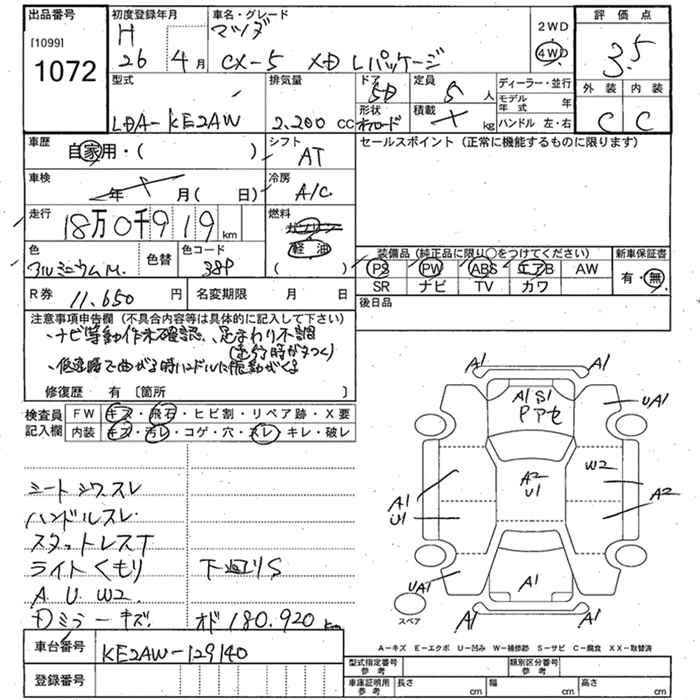 出品番号
[1099]
1072
初度登録年月
H
26 4月
車名・グレード
マツダ
CX-5 XD Lパッケージ
2WD
4WD
評価点
3.5
外装 内装
C C
型式
LDA-KE2AW
排気量
2,200 CC
ドア
5D
形状
定員
5人
積載
kg
ディーラー・並行
モデル年式 年
ハンドル 左・右
車歴
自家用・( )
シフト
AT
車検
年 月(日)
冷房
A/C
走行
18万0千919km
燃料
ガソリン
軽油
( )
色
アルミニウムM.
色替
色コード
38P
R券 11,650円
名変期限 月 日
セールスポイント(正常に機能するものに限ります)
装備品(純正品に限り○をつけてください)
PS PW ABS エアB AW
SR ナビ TV カワ
新車保証書
有・無
後日品
注意事項申告欄(不具合内容等は具体的に記入して下さい)
・ナビ等動作未確認、足まわり不調
・低速時で曲がる時ハンドルに振動がくる
修復歴 有〔箇所 〕
検査員記入欄
FW キズ・飛石・ヒビ割・リペア跡・X要
内装 キズ・汚レ・コゲ・穴・スレ・キレ・破レ
シートシワスレ
ハンドルスレ
スタットレスT
ライトくもり 下廻りS
A U W2
Dミラーキズ オド180,920km
車台番号 KE2AW-129140
登録番号
A1 A1
A1 S1
Pアセ
UA1
W2
A2
U1
A1
U1
A2
UA1
A1
A1 A1
スペア
A-キズ E-エクボ U-凹み W-補修跡 S-サビ C-腐食 XX-取替済
型式指定番号 参考
類別区分番号 参考
車庫証明用 参考 長さ cm 幅 cm 高さ cm